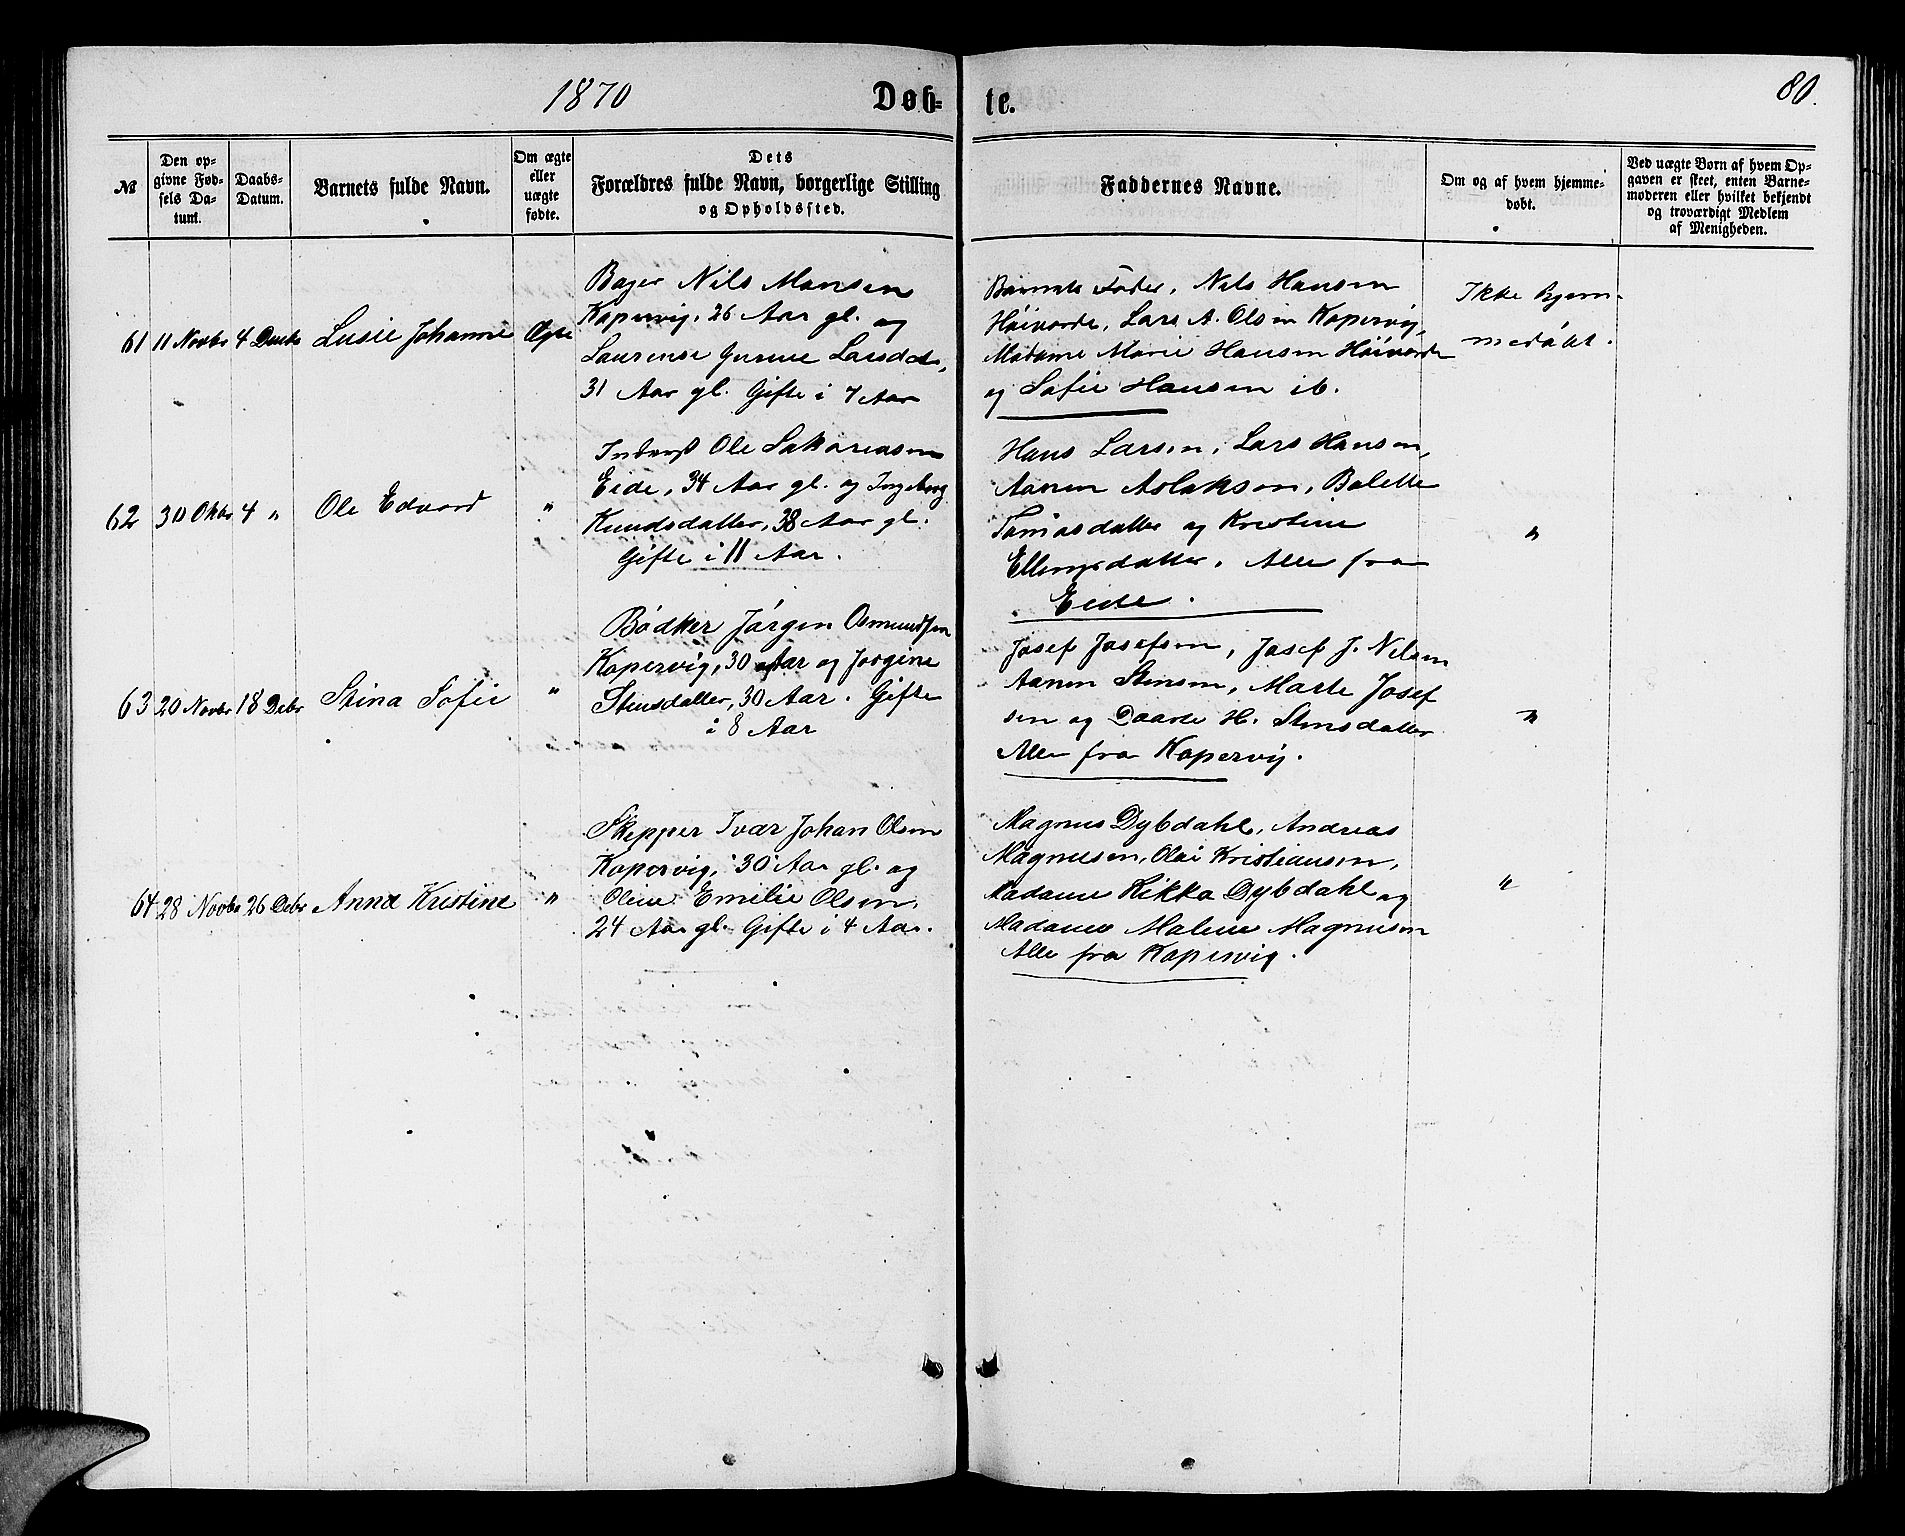 1870 Døb- te. 80.
№
Den op-
givne Fød-
sels Da-
tum.
Daabs-
Datum.
Barnets fulde Navn.
Om ægte
eller
uægte
fødte.
Dets
Forældres fulde Navn, borgerlige Stilling
og Opholdssted.
Faddernes Navne.
Om og af hvem hjemme-
døbt.
Ved uægte Børn af hvem Op-
gaven er skeet, enten Barne-
moderen eller hvilket bekjendt
og troværdigt Medlem
af Menigheden.
61 11 Novbr 4 Decbr Lusie Johanne Ægte
Bager Nils Monsen
Kopervig, 26 Aar gl. og
Laurense Gurine Larsdtr,
31 Aar gl. Gifte i 7 Aar
Barnets Fader, Nils Hansen
Høivarde, Lars A. Olsen Kopervig,
Madame Marie Hansen Høivarde
og Sofie Hansen ib.
Ikke hjem-
medøbt.
62 30 Oktbr 4 " Ole Edvard "
Inderst Ole Sakariasen
Eide, 34 Aar gl. og Ingeborg
Knudsdatter, 38 Aar gl.
Gifte i 11 Aar.
Hans Larsen, Lars Hansen,
Aanen Aslaksen, Bolette
Tomasdatter og Kristine
Ellingsdatter. Alle fra
Eide.
"
63 20 Novbr 18 Debr Stina Sofie "
Bødker Jørgen Osmundsen
Kopervig, 30 Aar og Jorgine
Stensdatter, 30 Aar. Gifte
i 8 Aar
Josef Josefsen, Josef J. Nilsen
Aanen Stensen, Marte Josef
sen og Daarte H. Stensdatter
Alle fra Kopervig.
"
64 28 Novbr 26 Debr Anna Kristine "
Skepper Ivar Johan Olsen
Kopervig, 30 Aar gl. og
Oline Emilie Olsen,
24 Aar gl. Gifte i 4 Aar.
Magnus Dybdahl, Andreas
Magnusen, Olai Kristiansen,
Madame Rikka Dybdahl og
Madame Malene Magnusen
Alle fra Kopervig.
"